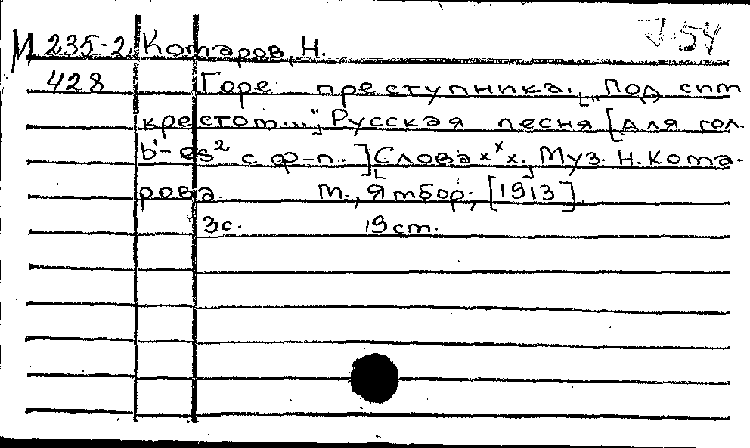 М 235-2 Комаров, Н. J-54
428 Горе преступника. ["Под
крестом..."] Русская песня [для гол.
b'-es² с ф-п.] [Слова х х х.] Муз. Н. Кома-
рова М., Ямбор, [1913].
3с. 19 cm.